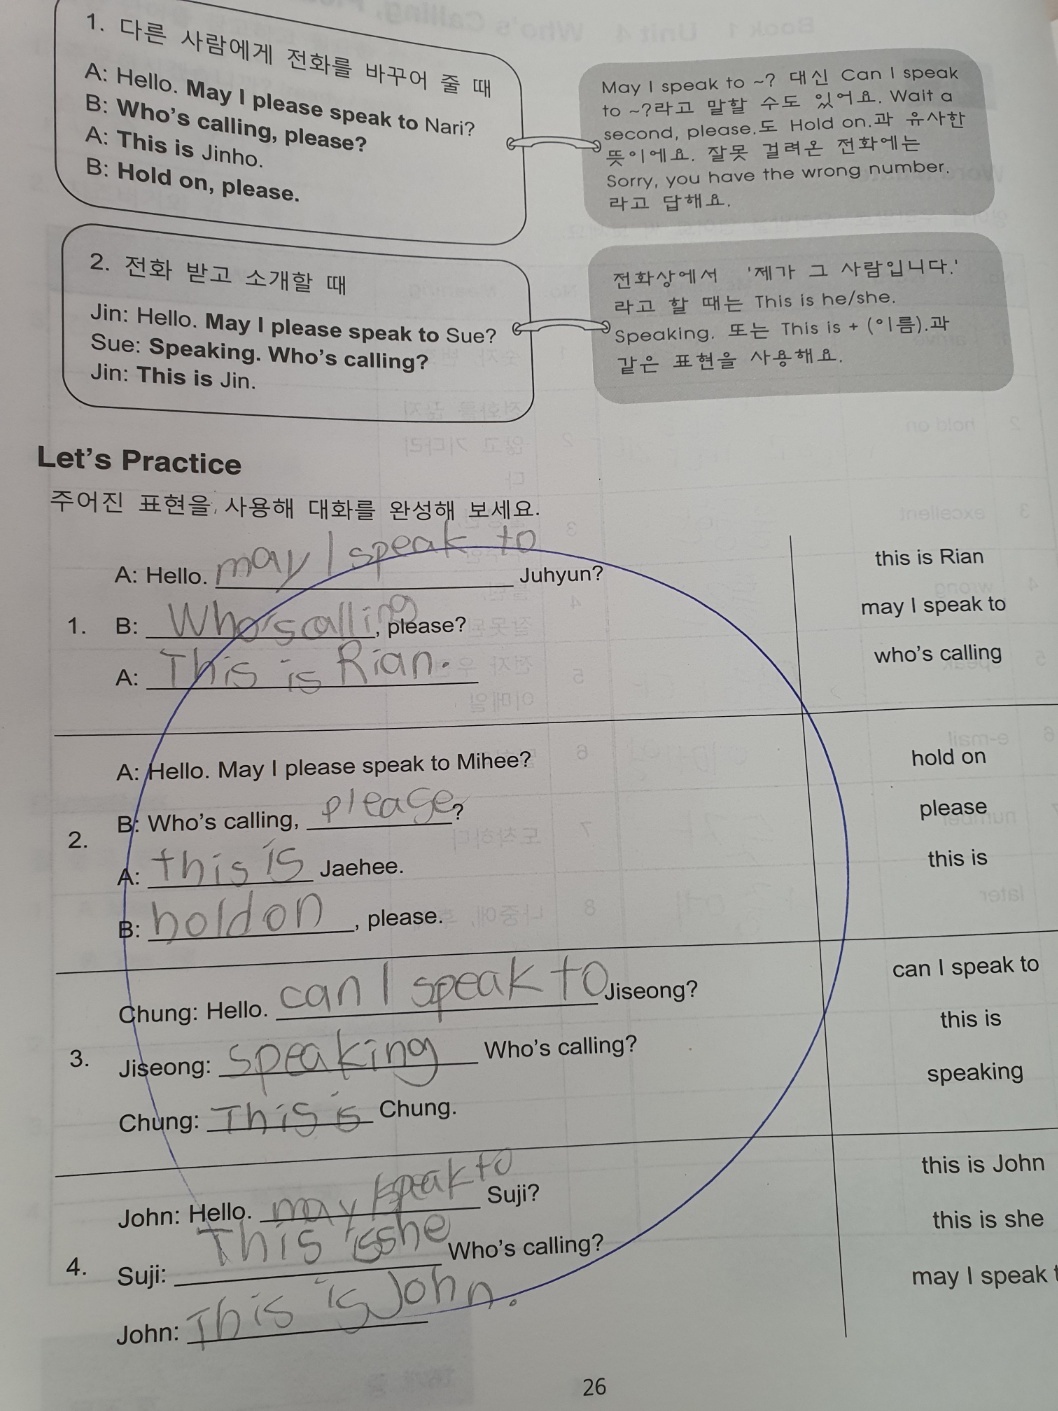 1. 다른 사람에게 전화를 바꾸어 줄 때
A: Hello. May I please speak to Nari?
B: Who's calling, please?
A: This is Jinho.
B: Hold on, please.
May I speak to ~? 대신 Can I speak
to ~?라고 말할 수도 있어요. Wait a
second, please.도 Hold on.과 유사한
뜻이에요. 잘못 걸려온 전화에는
Sorry, you have the wrong number.
라고 답해요.
2. 전화 받고 소개할 때
Jin: Hello. May I please speak to Sue?
Sue: Speaking. Who's calling?
Jin: This is Jin.
전화상에서 '제가 그 사람입니다.'
라고 할 때는 This is he/she.
Speaking. 또는 This is + (이름).과
같은 표현을 사용해요.
Let's Practice
주어진 표현을 사용해 대화를 완성해 보세요.
A: Hello. may I speak to Juhyun?
1. B: Who's calling, please?
A: This is Rian.
this is Rian
may I speak to
who's calling
A: Hello. May I please speak to Mihee?
B: Who's calling, please?
2.
A: this is Jaehee.
B: hold on, please.
hold on
please
this is
Chung: Hello. can I speak to Jiseong?
3. Jiseong: speaking Who's calling?
Chung: This is Chung.
can I speak to
this is
speaking
John: Hello. may I speak to Suji?
4. Suji: This is she Who's calling?
John: This is John.
this is John
this is she
may I speak t
26